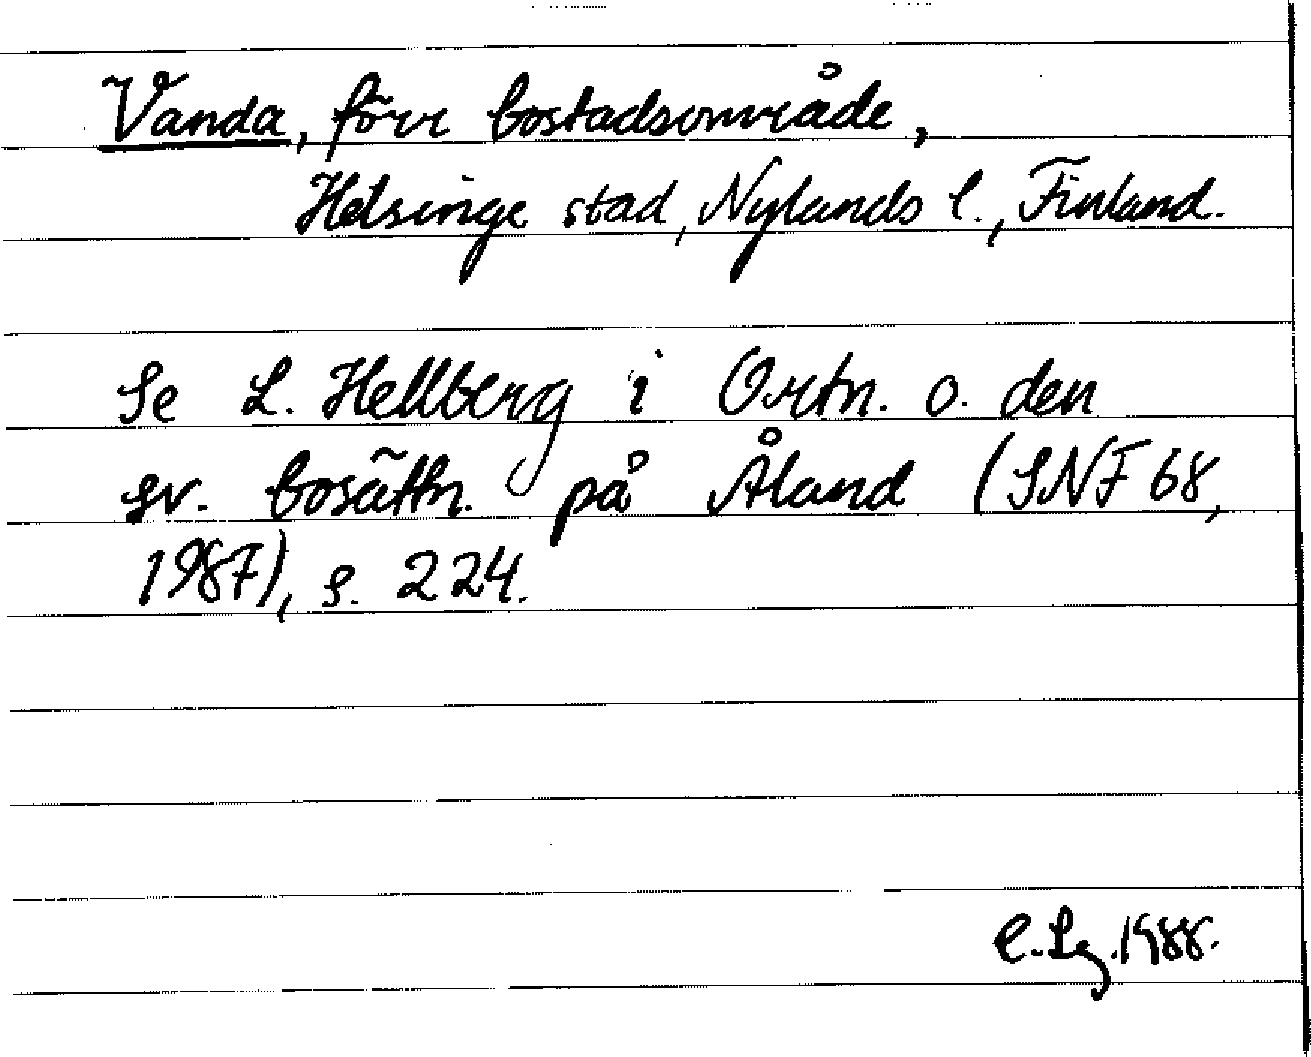 Vanda, förr bostadsområde,
Helsinge stad, Nylands l., Finland.
Se L. Hellberg i Ortn. o. den
sv. bosättn. på Åland (SNF 68,
1987), s. 224.
C. Lg. 1988.